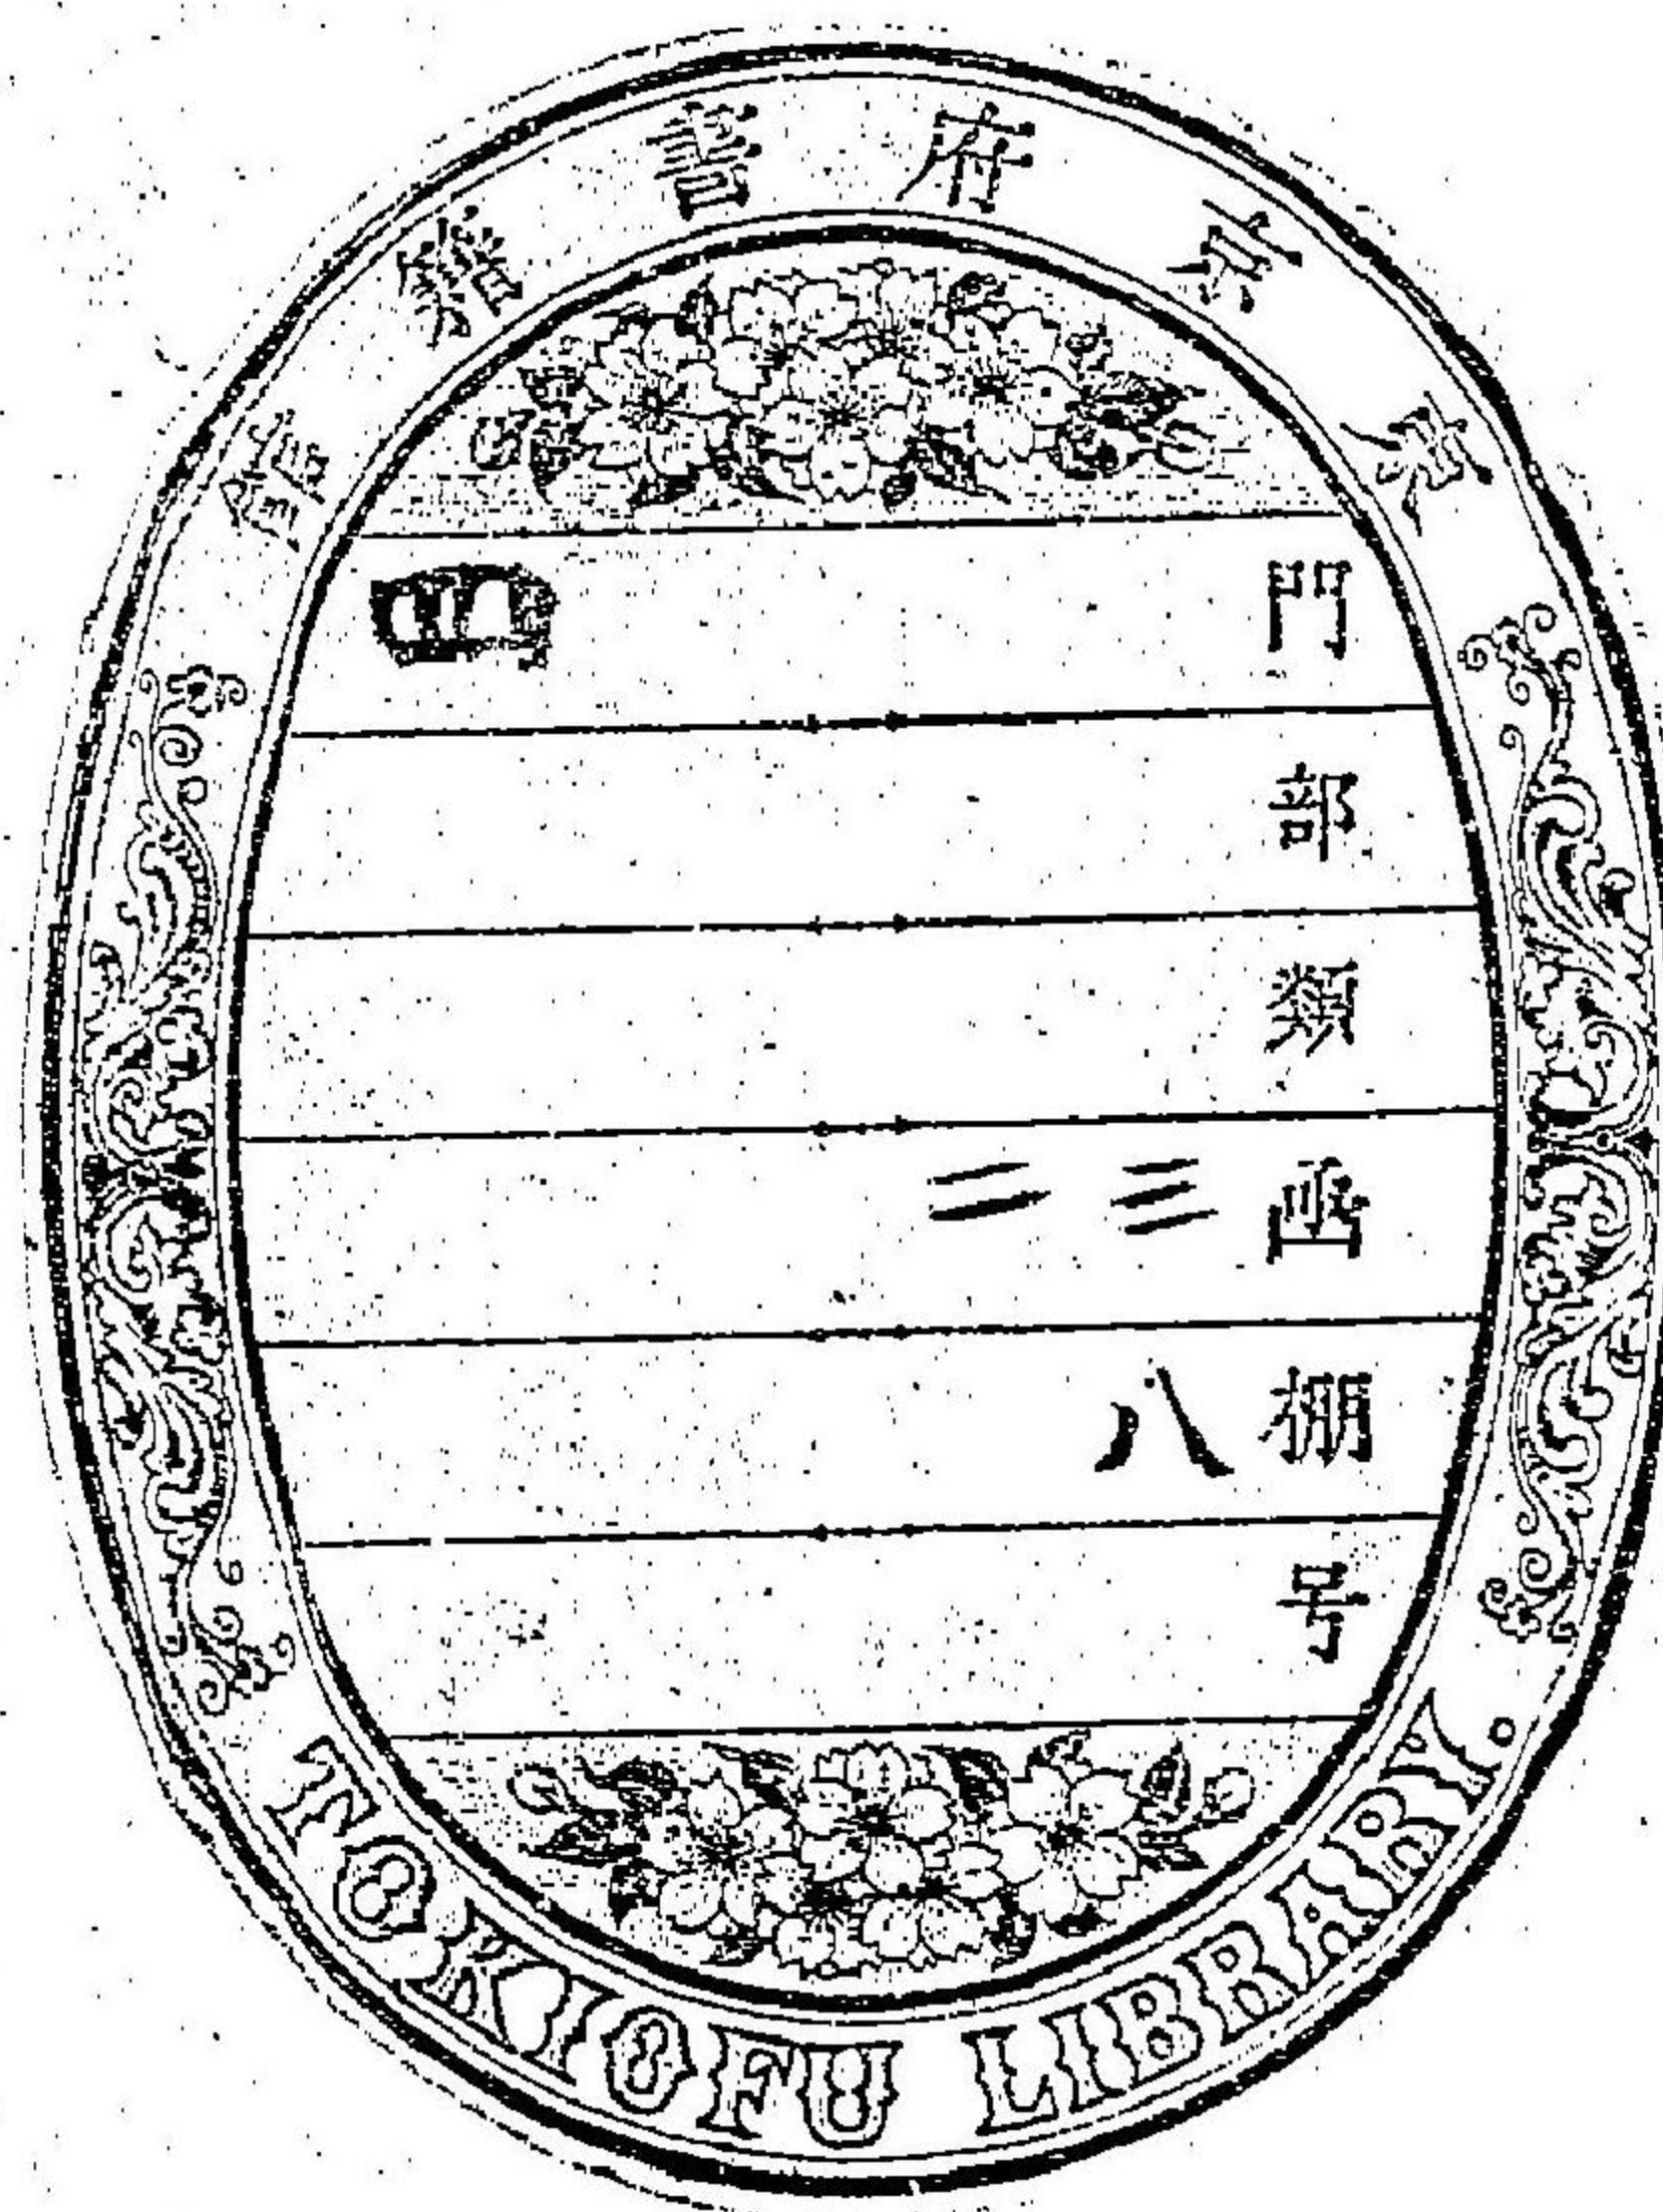 東京府書籍館
門 四
部
類
函 三二
棚 八
号
TOKIOFU LIBRARY.